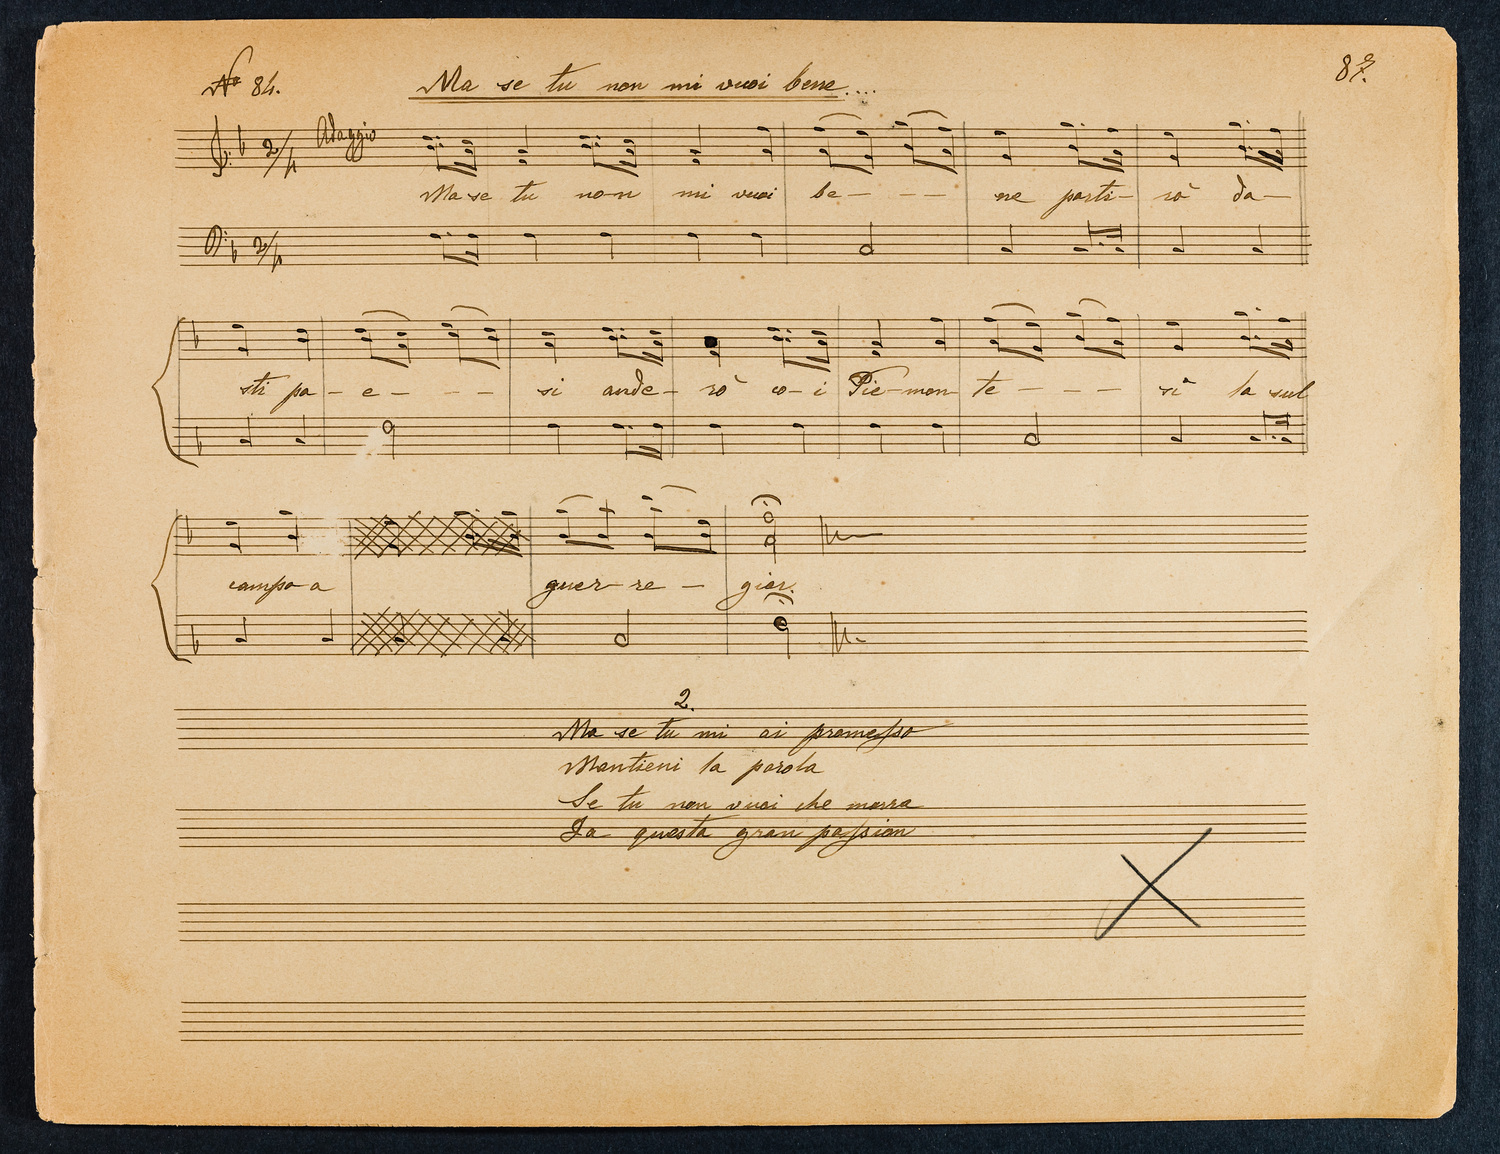 No 84.
Ma se tu non mi vuoi bene....
87.
2/4 Adagio
Ma se tu non mi vuoi be - - - ne parti- rò da-
2/4
sti pa- e - - - - si ande- rò co- i Pie-mon te - - - - sì la sul
campo a guer- re - gier.
2.
Ma se tu mi ai promesso
Mantieni la parola
Se tu non vuoi che morra
Da questa gran passion